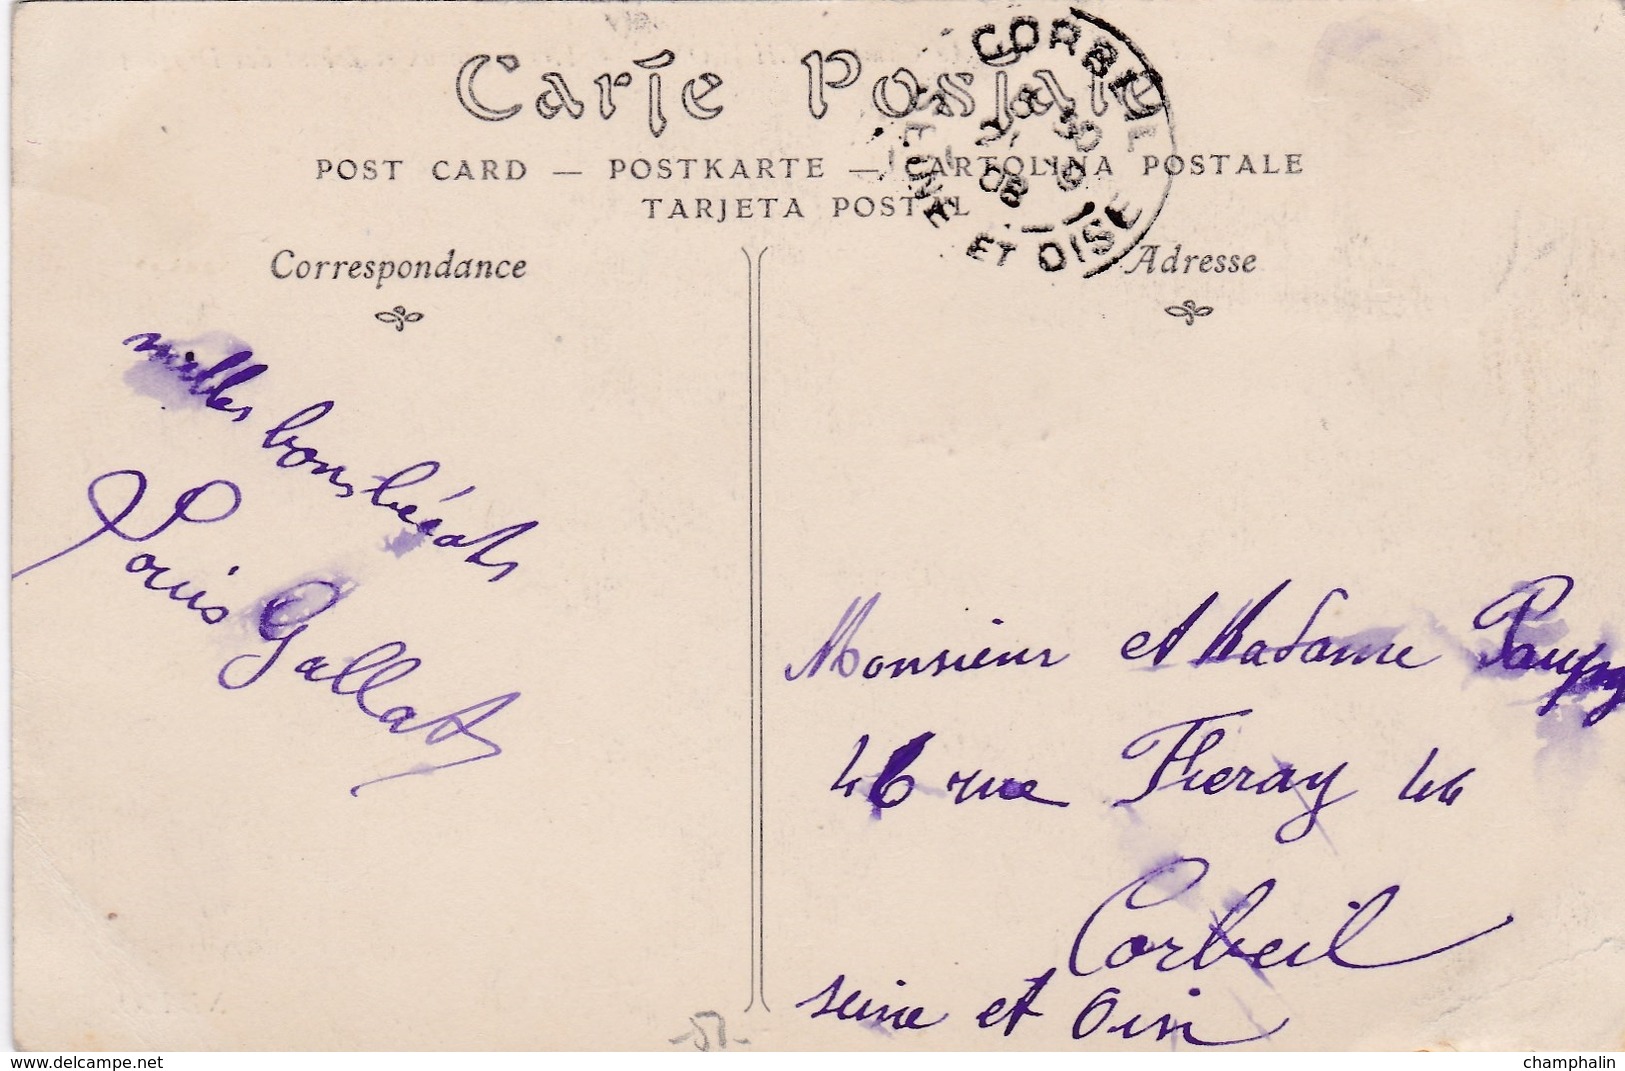 Carte Postale
POST CARD — POSTKARTE — CARTOLINA POSTALE
TARJETA POSTAL
CORBEIL
SEINE ET OISE
08
Correspondance
Adresse
milles bons
Louis Gallat
Monsieur et Madame
46 rue Feray 46
Corbeil
seine et Oise
www.delcampe.net
champhalin